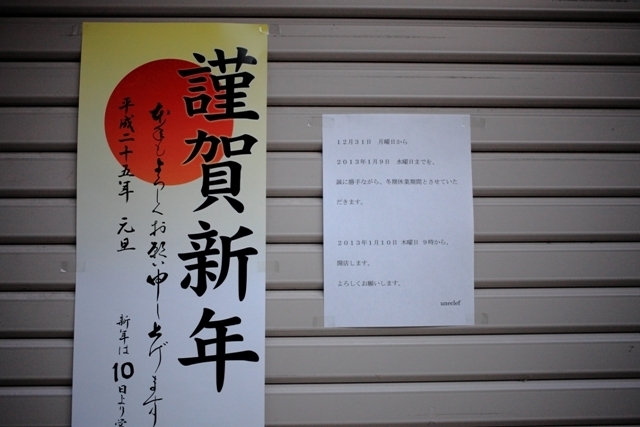 謹賀新年
本年もよろしくお願い申し上げます
平成二十五年 元旦
新年は10日より
12月31日 月曜日から
2013年1月9日 水曜日までを、
誠に勝手ながら、冬期休業期間とさせていた
だきます。
2013年1月10日 木曜日 9時から、
開店します。
よろしくお願いします。